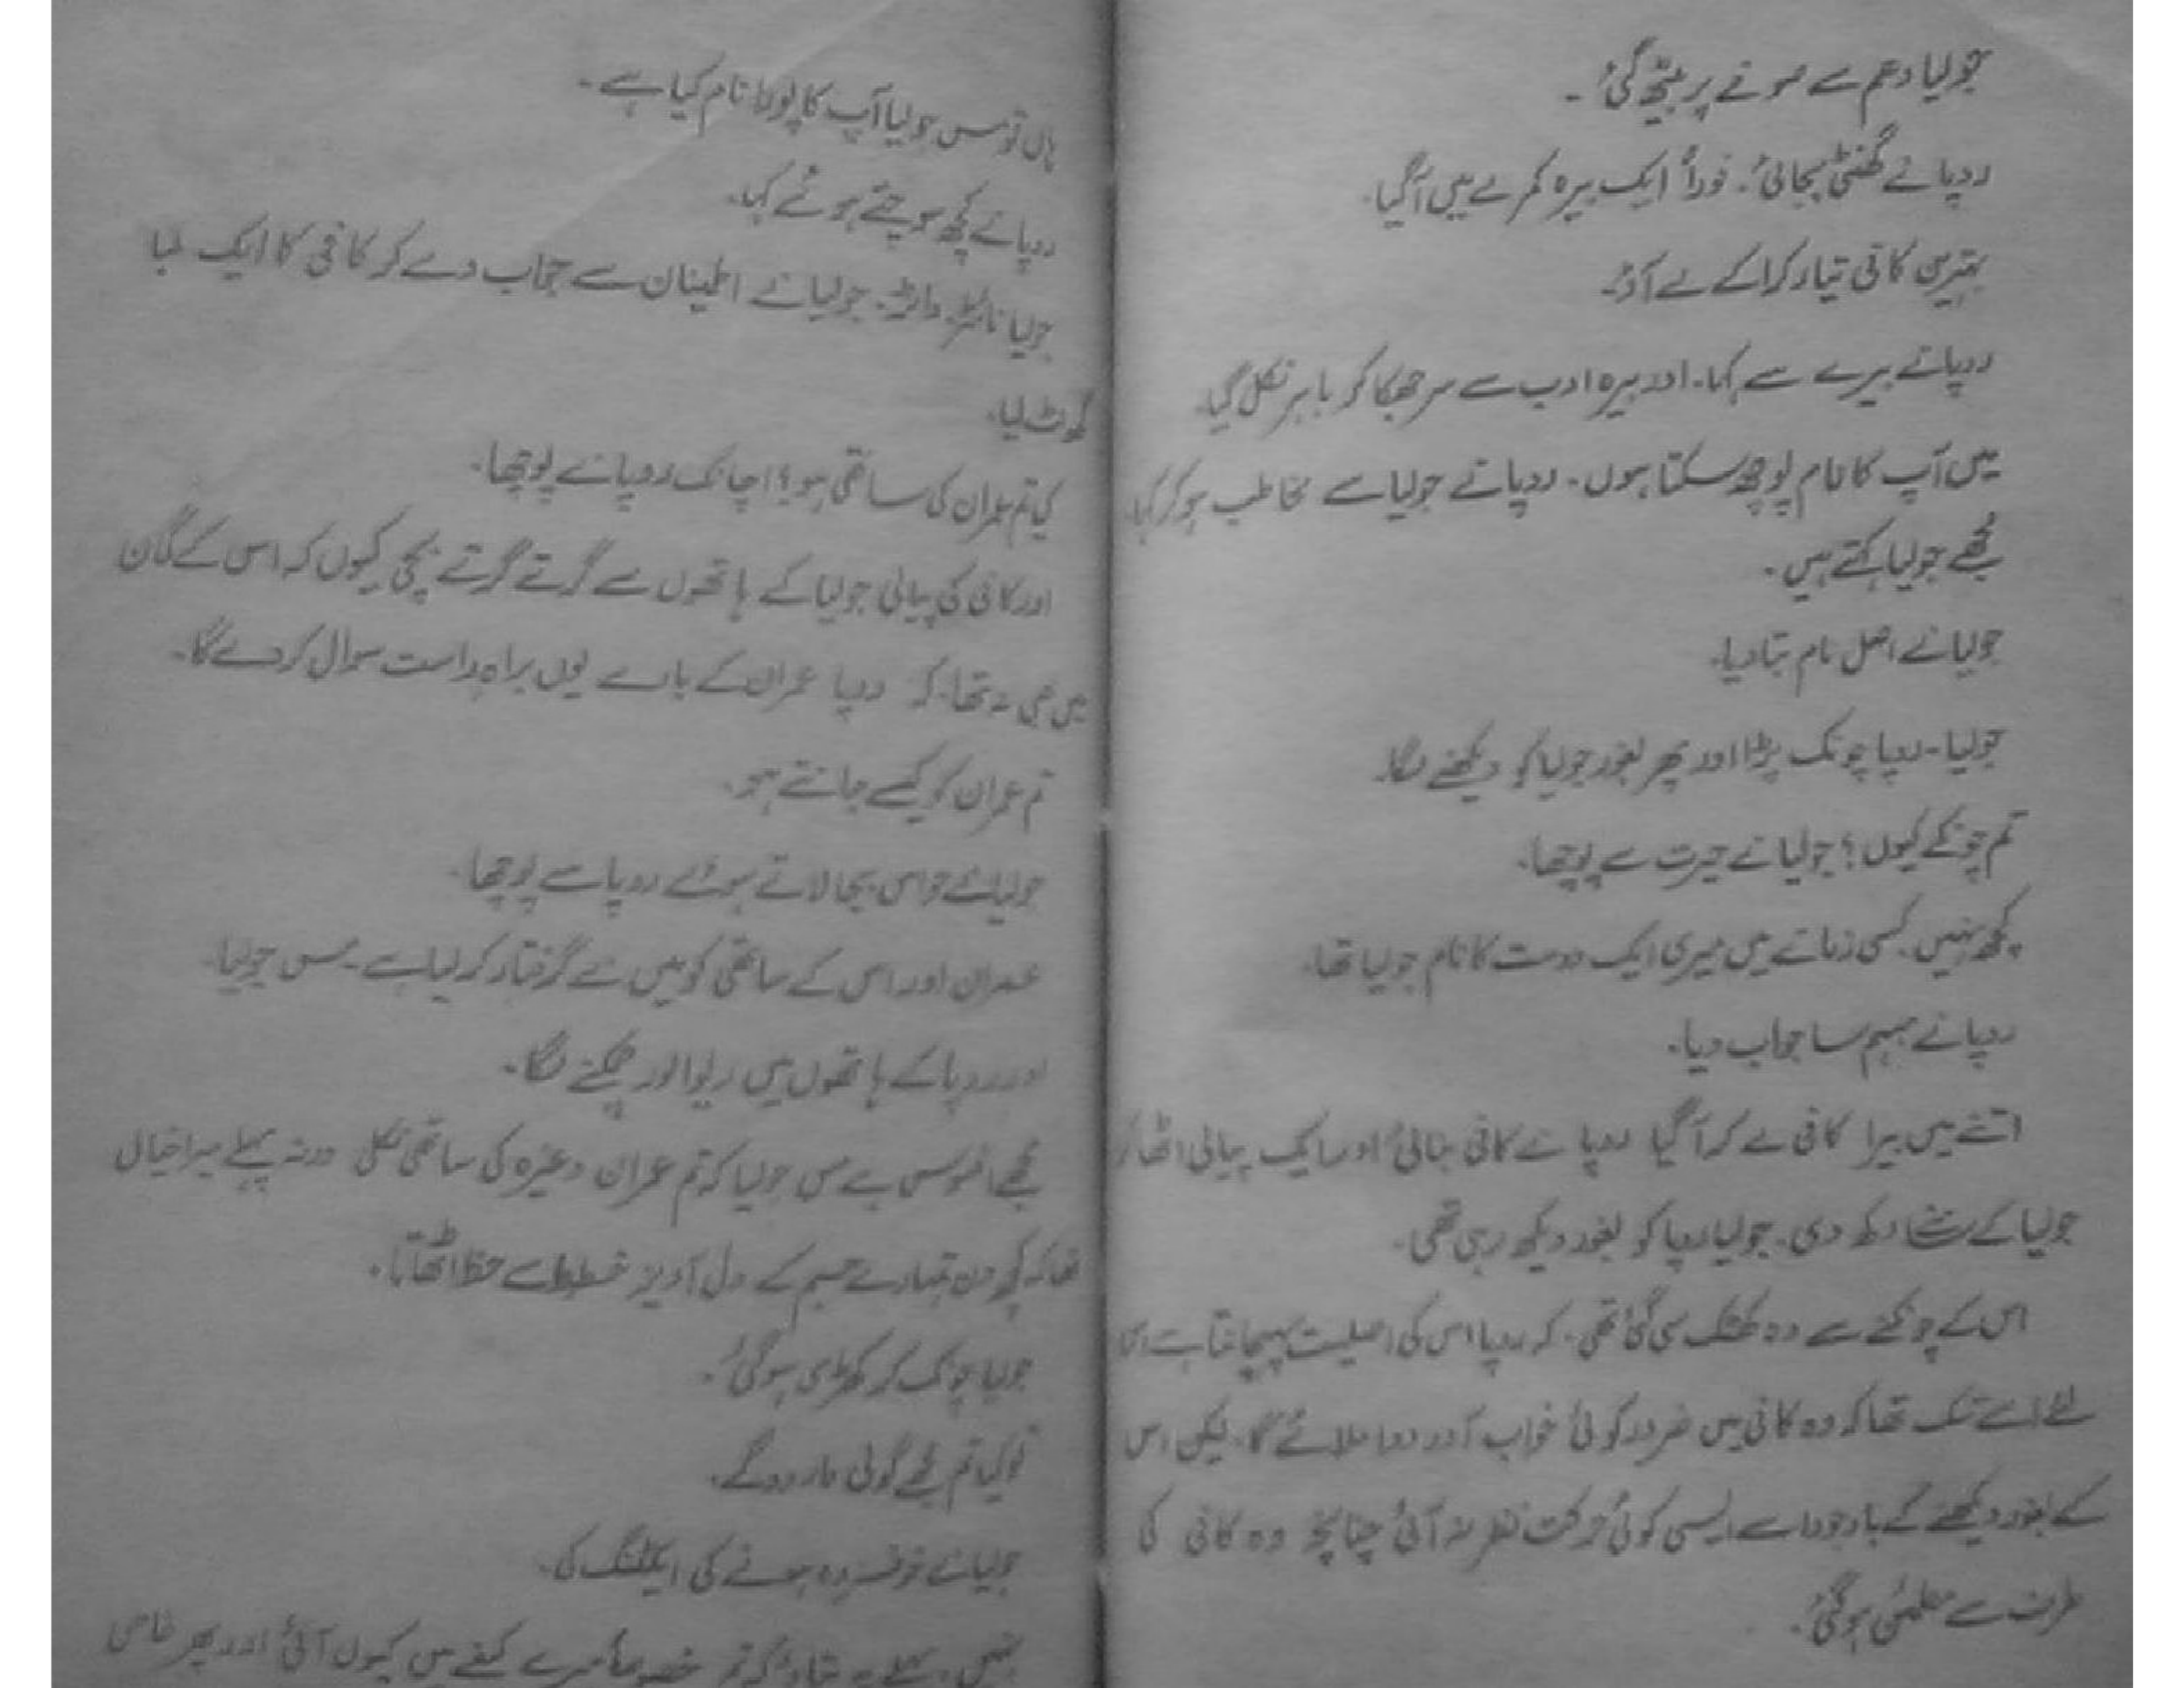 جولیا دھم سے صوفے پر بیٹھ گئی۔
روپا نے گھنٹی بجائی۔ فوراً ایک بیرہ کمرے میں آگیا۔
بہترین کافی تیار کرا کے لے آؤ۔
روپا نے بیرے سے کہا۔ اور بیرہ ادب سے سر جھکا کر باہر نکل گیا۔
میں آپ کا نام پوچھ سکتا ہوں۔ روپا نے جولیا سے مخاطب ہو کر کہا۔
مجھے جولیا کہتے ہیں۔
جولیا نے اصل نام بتا دیا۔
جولیا۔ روپا چونک پڑا اور پھر بغور جولیا کو دیکھنے لگا۔
تم چونکے کیوں؟ جولیا نے حیرت سے پوچھا۔
کچھ نہیں۔ کسی زمانے میں میری ایک دوست کا نام جولیا تھا۔
روپا نے مبہم سا جواب دیا۔
اتنے میں بیرا کافی لے کر آگیا روپا نے کافی بنائی اور ایک پیالی اٹھا کر
جولیا کے سامنے رکھ دی۔ جولیا روپا کو بغور دیکھ رہی تھی۔
اس کے چونکنے سے وہ کھٹک سی گئی تھی۔ کہ روپا اس کی اصلیت پہچانتا ہے اس
لئے اسے شک تھا کہ وہ کافی میں ضرور کوئی خواب آور دوا ملائے گا۔ لیکن اس
کے بغور دیکھنے کے باوجود اسے ایسی کوئی حرکت نظر نہ آئی چنانچہ وہ کافی کی
طرف سے مطمئن ہو گئی۔
ہاں تو مس جولیا آپ کا پورا نام کیا ہے۔
روپا نے کچھ سوچتے ہوئے کہا۔
جولیا نافٹر واٹر۔ جولیا نے اطمینان سے جواب دے کر کافی کا ایک لمبا
گھونٹ لیا۔
کیا تم عمران کی ساتھی ہو؟ اچانک روپا نے پوچھا۔
اور کافی کی پیالی جولیا کے ہاتھوں سے گرتے گرتے بچی کیوں کہ اس کے گمان
میں بھی نہ تھا۔ کہ روپا عمران کے بارے یوں براہ راست سوال کر دے گا۔
تم عمران کو کیسے جانتے ہو۔
جولیا نے حواس بجا لاتے ہوئے روپا سے پوچھا۔
عمران اور اس کے ساتھی کو میں نے گرفتار کر لیا ہے۔ مس جولیا۔
اور روپا کے ہاتھوں میں ریوالور چمکنے لگا۔
مجھے افسوس ہے مس جولیا کہ تم عمران وغیرہ کی ساتھی نکلی ورنہ پہلے میرا خیال
تھا کہ کچھ دن تمہارے جسم کے دل آویز خطوط سے حظ اٹھاتا۔
جولیا چونک کر کھڑی ہو گئی۔
تو کیا تم مجھے گولی مار دو گے۔
جولیا نے خوفزدہ ہونے کی ایکٹنگ کی۔
نہیں۔ پہلے یہ بتاؤ کہ تم میرے کیفے میں کیوں آئی اور پھر خاص